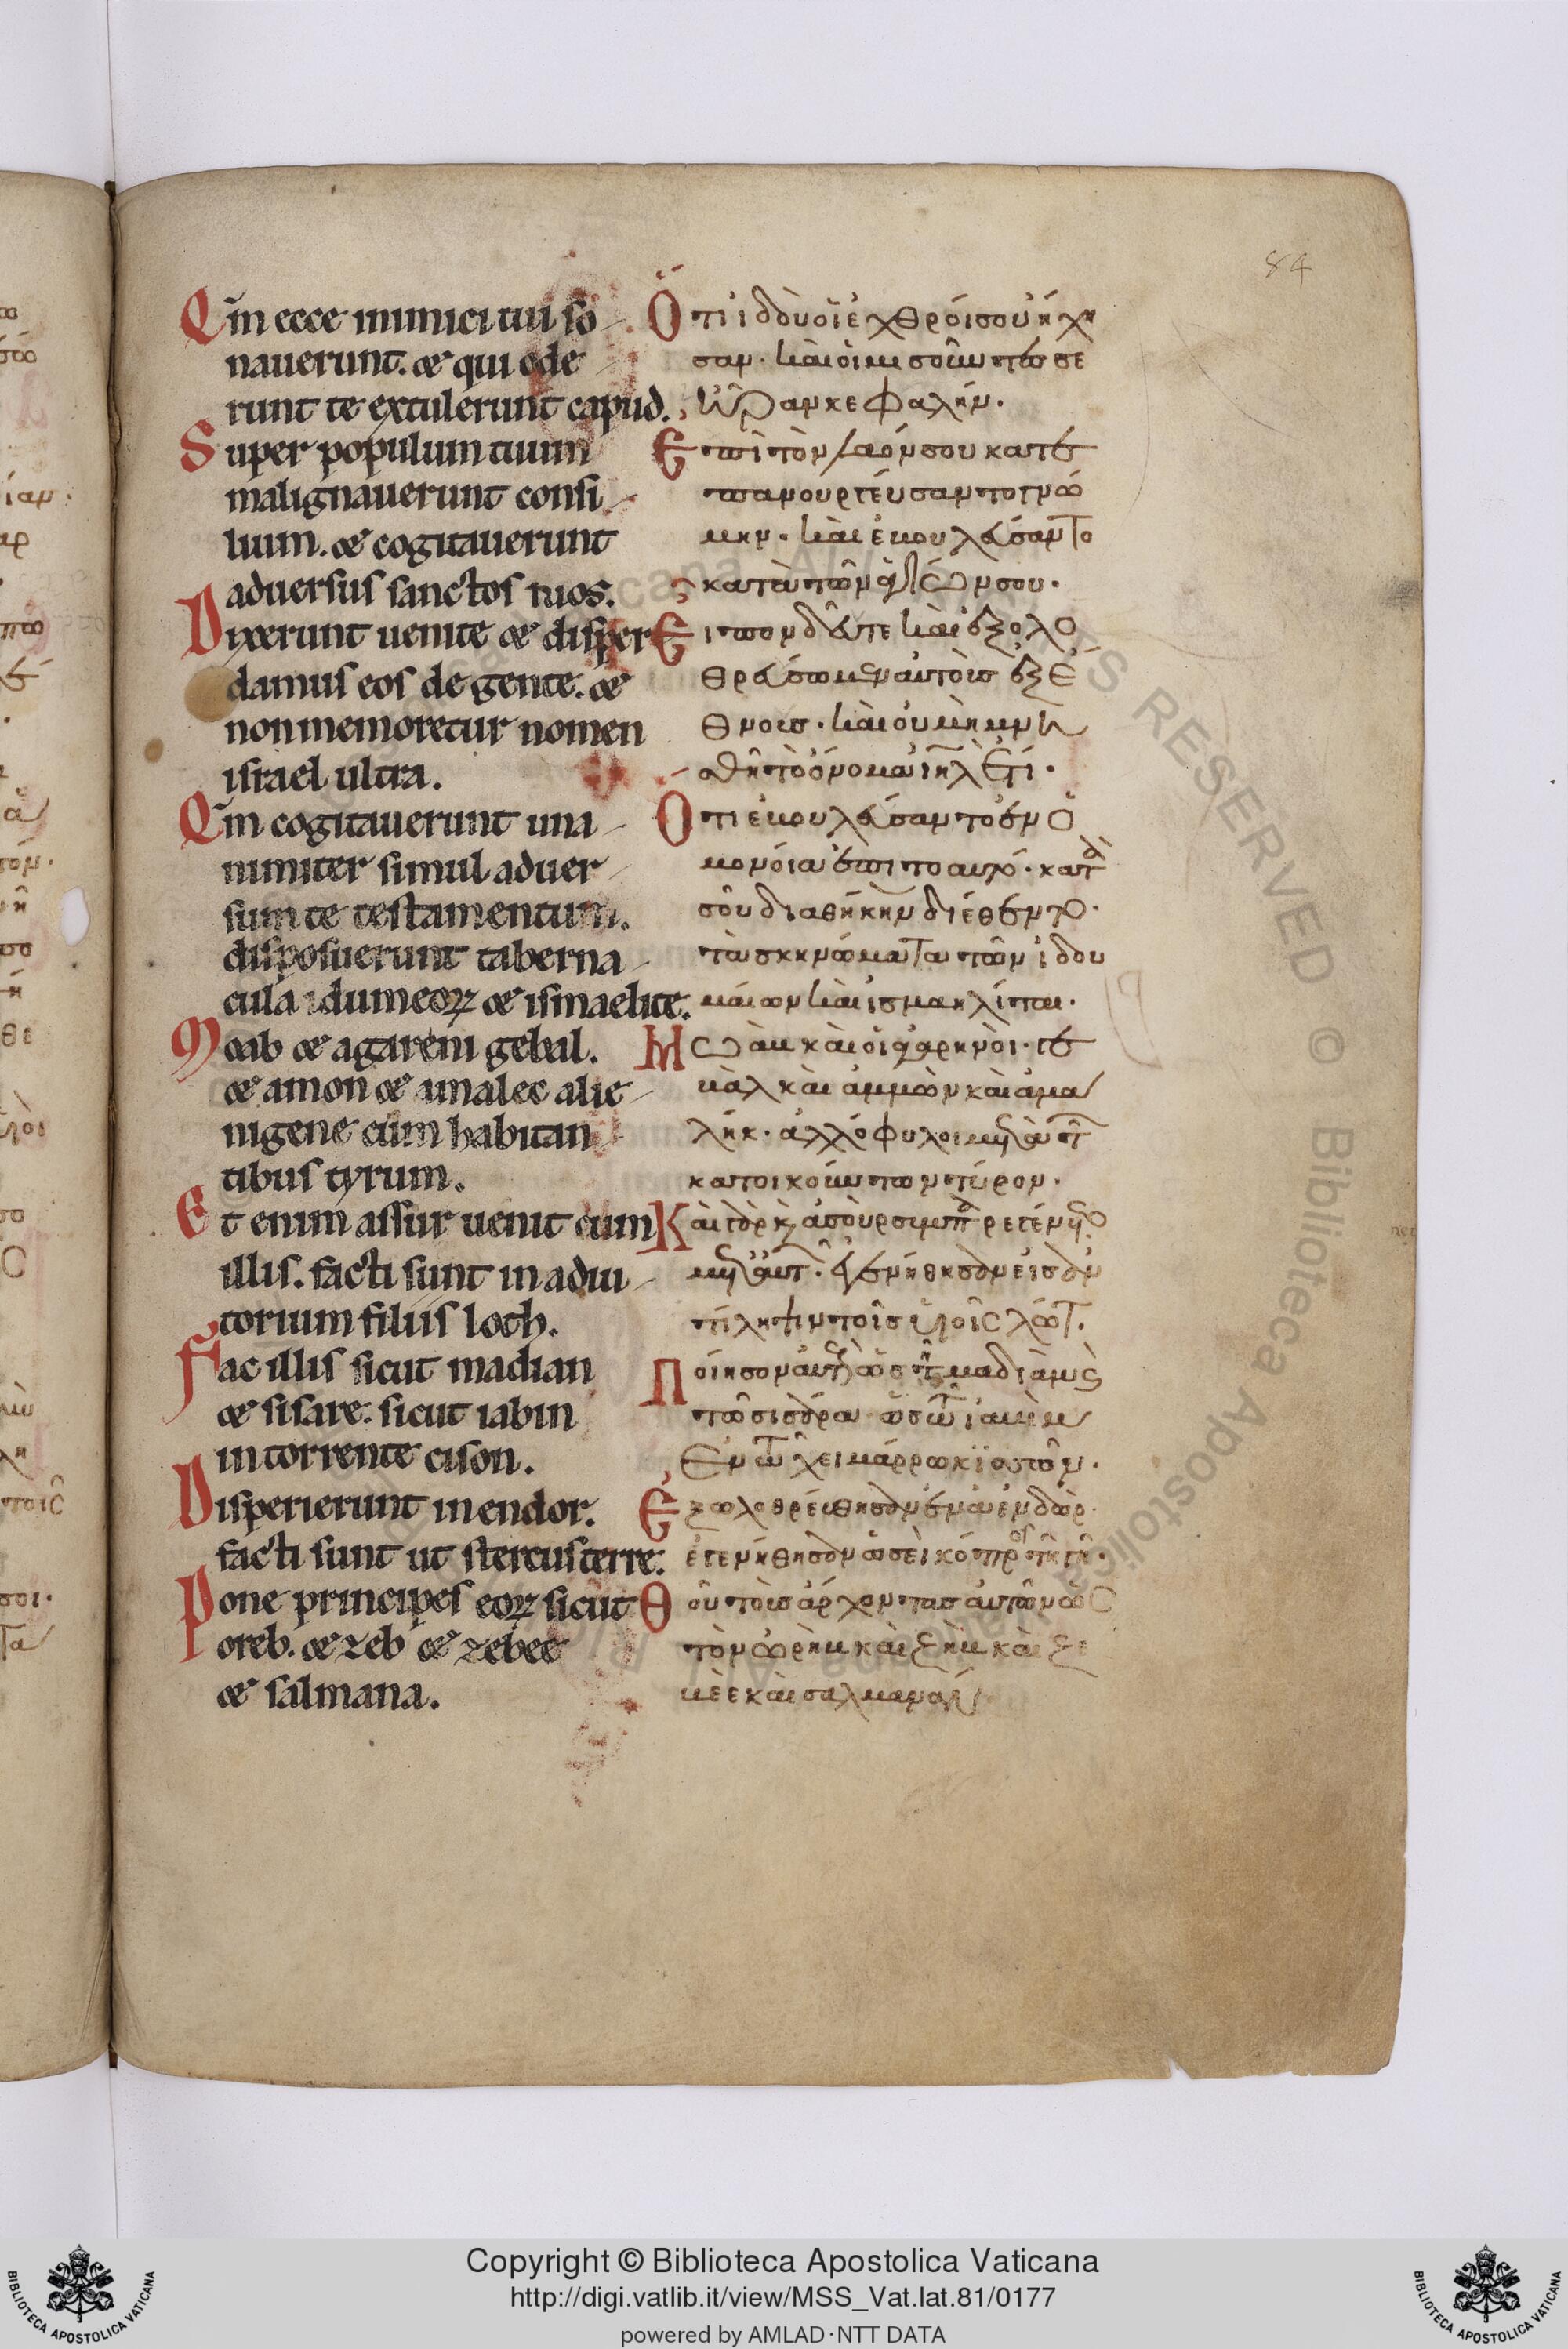 84
Qm̄ ecce inimici tui so-
nauerunt. & qui ode
runt te extulerunt capud.
Super populum tuum
malignauerunt consi-
lium. & cogitauerunt
aduersus sanctos tuos.
Dixerunt uenite & disper
damus eos de gente. &
non memoretur nomen
israel ultra.
Qm̄ cogitauerunt una-
nimiter simul aduer-
sum te testamentum.
disposuerunt taberna-
cula idumeoꝝ & ismaelite.
Moab & agareni gebal.
& amon & amalec alie-
nigene cum habitan
tibus tyrum.
Et enim assur uenit cum
illis. facti sunt in adiu-
torium filiis loth.
Fac illis sicut madian
& sisare. sicut iabin
in torrente cison.
Disperierunt in endor.
facti sunt ut stercus terre.
Pone principes eoꝝ sicut
oreb. & zeb & zebee
& salmana.
Ὅτι ἰδοὺ οἱ ἐχθρόι σου ήχη
σαν. καὶ οἱ μισοῦντές σὲ
ἦραν κεφαλήν.
Ἐπὶ τὸν λαόν σου κατε
πανουργέυσαντο γνώ
μην. καὶ ἐβουλέυσαντο
κατὰ τῶν ἁγίων σου.
Ἐιπον δεῦτε καὶ ἐξολο
θρέυσωμεν αυτοὺς ἐξ ἔ
θνους. καὶ οὐ μὴ μνη
σθῆ τὸ ὄνομα ιηλ ἔτι.
Ὅτι ἐβουλέυσαντο ἐν ὁ
μονόια ἐπιτοαυτό. κατὰ
σοῦ διαθήκην διέθεντο.
τὰ σκηνώματα τῶν ἰδου
μάιων καὶ ἰσμαηλίται.
Μωὰβ καὶ οἱ ἀγαρηνὸι. γε
βὰλ καὶ ἀμμὼν καὶ ἀμα
λήκ. ἀλλόφυλοι μετὰ τῶν
κατοικούντων τύρον.
Καὶ γὰρ καὶ ἀσοὺρ συμπαρεγένετο
μετ ἀυτῶν. ἐγενήθησαν εἰς ἀν
τίληψιν τοῖς υἱοῖς λώτ.
Ποίησον ἀυτοῖς ὡς τῆ μαδιὰμ καὶ
τῶ σισάρα ὡς τῶ ἰαβὶν
Ἐν τῶ χειμάρρω κισσῶν.
Ἐξωλοθρέυθησαν ἐν ἀενδώρ.
ἐγενήθησαν ὡσεὶ κόπρος τῆ γῆ.
Θοῦ τοὺς ἄρχοντας αὐτῶν ὡς
τὸν ὠρὴβ καὶ ζὴβ καὶ ζε
βὲε καὶ σαλμανα
Copyright © Biblioteca Apostolica Vaticana
http://digi.vatlib.it/view/MSS_Vat.lat.81/0177
powered by AMLAD·NTT DATA
BIBLIOTECA APOSTOLICA VATICANA
BIBLIOTECA APOSTOLICA VATICANA